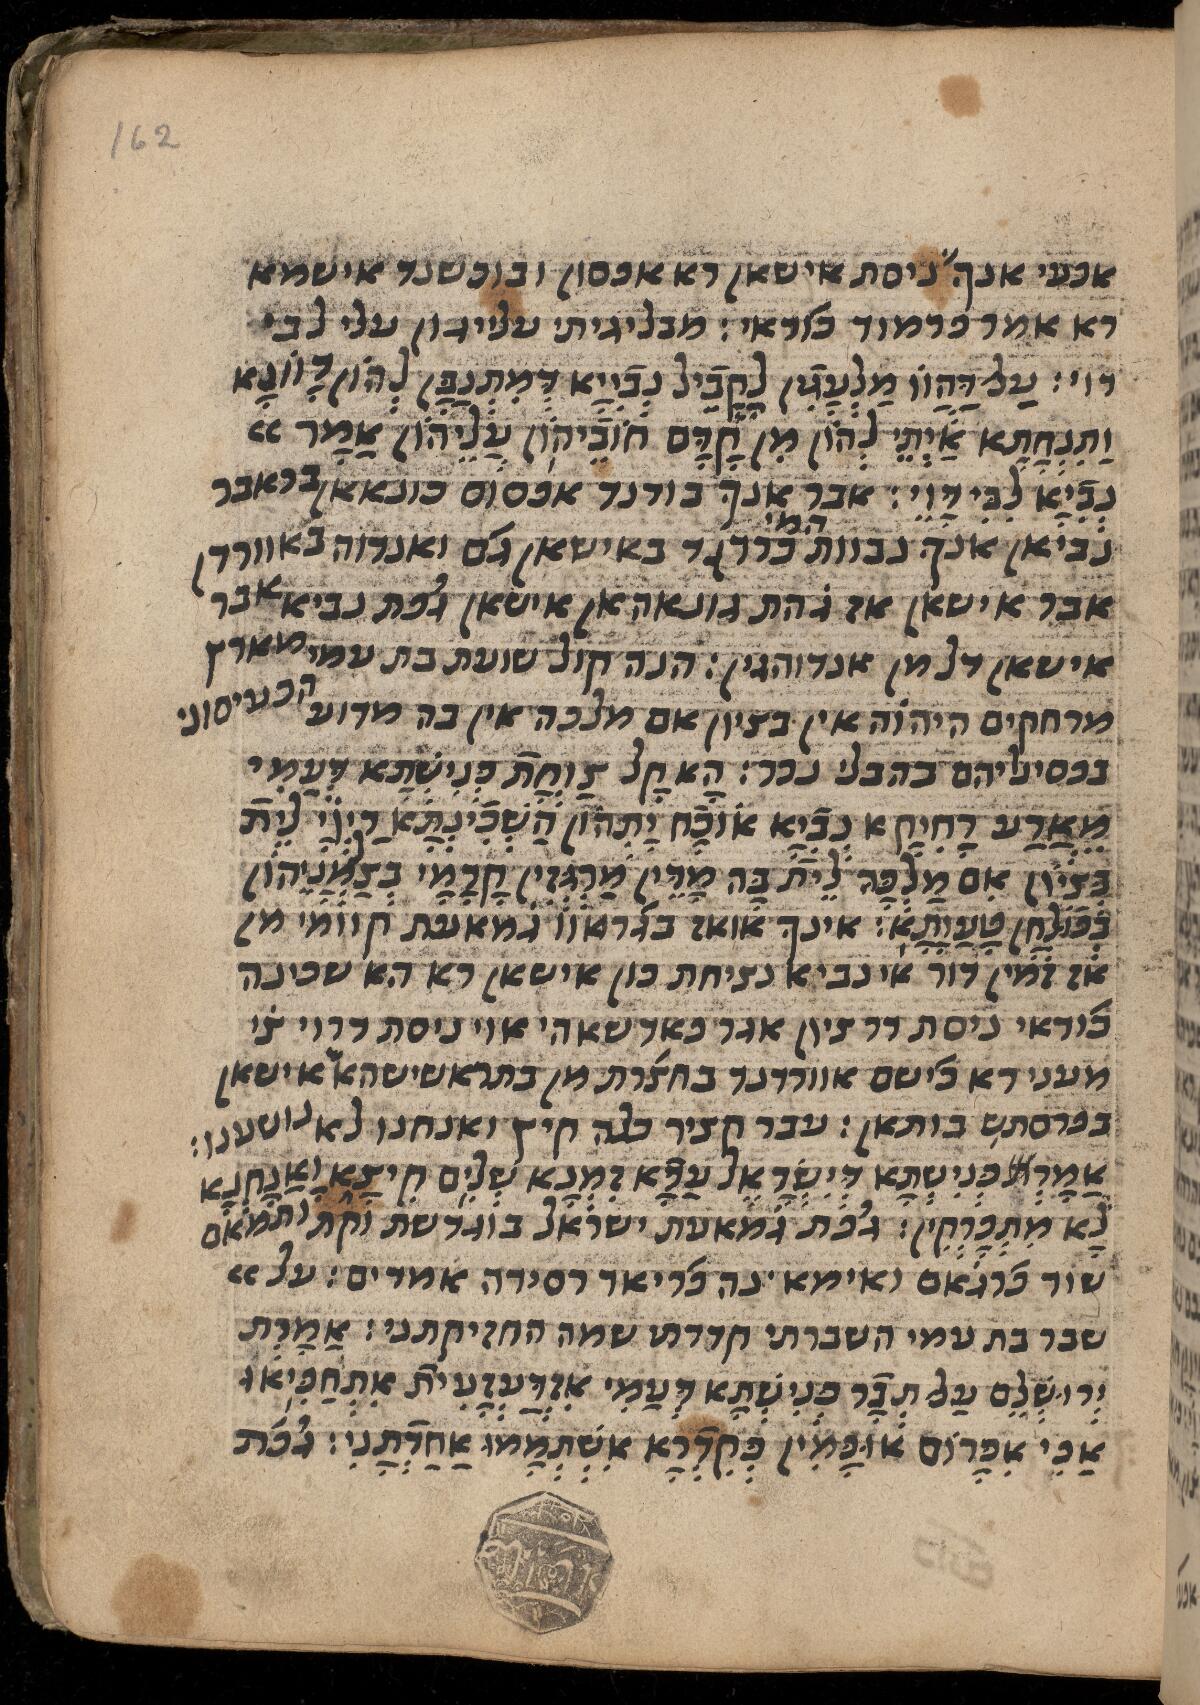 162
אפעי אנך ניסת אישאן רא אפסון ובוכשנד אישמא
רא אמר פרמוד כודאי: מבליגיתי עלי יגון עלי לבי
דוי: עַל דַהֲווֹ מַלְעֲגִין לָקֳבֵיל נְבִיַיָא דְמִתְנַבַן לְהוֹן דָווֹנָא
וְתִנְחֲתָא אַיְתֵי לְהוֹן מִן קֳדָם חוֹבֵיהוֹן עֲלֵיהוֹן אֲמַר
נְבִיָא לִבִי דָוֵי: אבר אנך בודנד אפסוס כונאאן בראבר
נביאן אנך נבוות המי כרדנד באישאן גם ואנדוה באוורדן
אבר אישאן אז גהת גונאהאן אישאן גפת נביא אבר
אישאן דל מן אנדוהגין: הנה קול שועת בת עמי מארץ
מרחקים היהוה אין בציון אם מלכה אין בה מדוע הכעיסוני
בפסיליהם בהבלי נכר: הָא קָל צַוְחַת כְנִישְׁתָא דְעַמִי
מֵאַרַע רַחִיקָא נְבִיָא אוֹכַח יַתְהוֹן הַשְׁכִינְתָא דַייָי לֵית
בְצִיוֹן אִם מַלְכַּהּ לֵית בַהּ מָדֵין מַרְגְזִין קֳדָמָי בְצַלְמָנֵיהוֹן
בְפוּלְחַן טָעֲוָתָא: אינך אואז בגראוו גמאעת קוומי מן
אז זמין דור אי נביא נציחת כון אישאן רא הא שכינה
כודאי ניסת דר ציון אגר פאדשאהי אוי ניסת דרוי צי
מעני רא כישם אוורדנד בחצרת מן בתראשישהא אישאן
בפרסתש בותאן: עבר קציר כלה קיץ ואנחנו לא נושענו:
אֲמָרַת כְנִישְׁתָא דְיִשְׂרָאֵל עֲדָא זִמְנָא שְׁלִים קִיצָא וַאֲנַחְנָא
לָא מִתְפָרְקִין: גפת גמאעת ישראל בוגדשת וקת ותמאם
שוד פרגאם ואימא נה פריאד רסידה אמדים: על
שבר בת עמי השברתי קדרתי שמה החזיקתני: אֲמָרַת
יְרוּשְׁלֵם עַל תְבַר כְנִישְׁתָא דְעַמִי אִזְדַעְזְעִית אִתְחֲפִיאוּ
אַפִי אִכְרוֹם אוּכָמִין כְקִדְרָא אִשְׁתְמָמוּ אַחַדְתַנִי: גפת